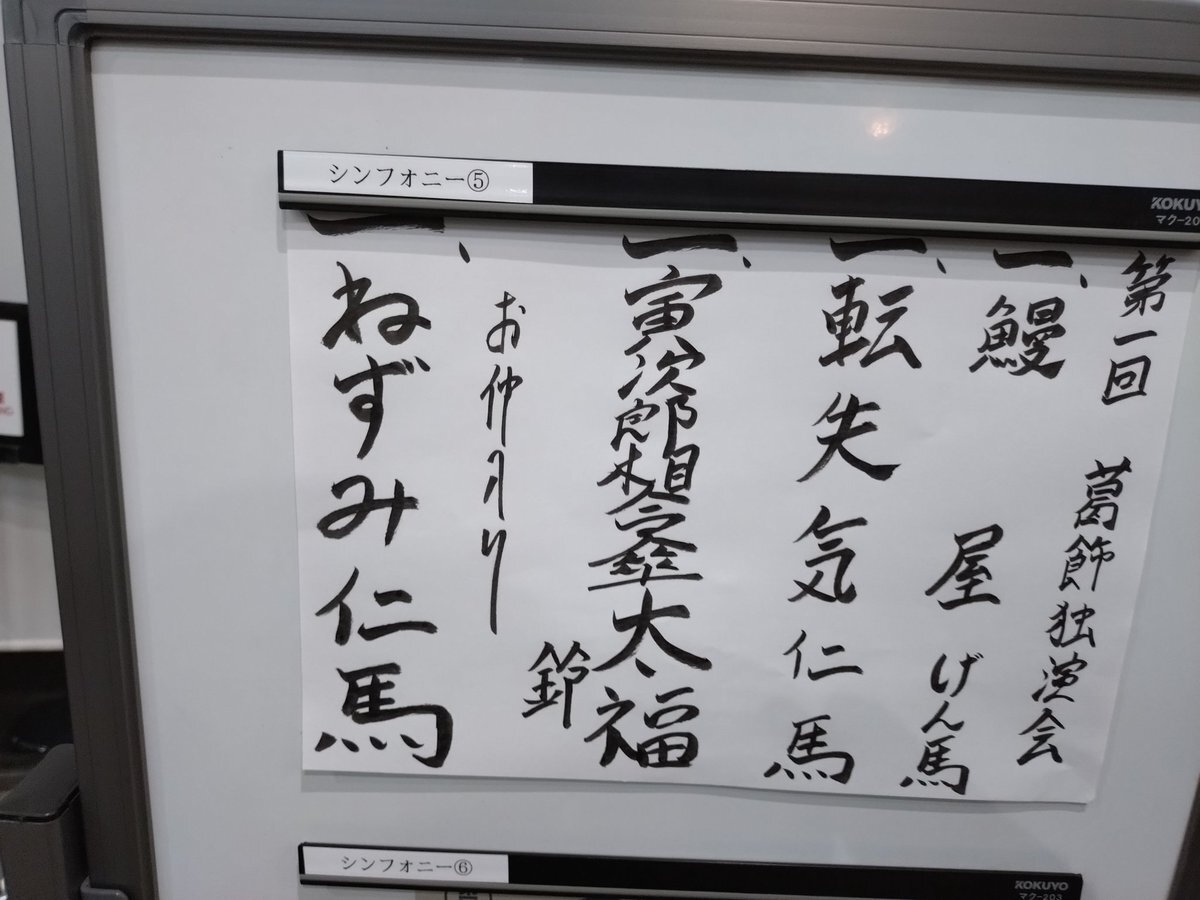 シンフォニー⑤
KOKUYO
マク-20
第一回 葛飾独演会
一、鰻屋 げん馬
一、転失気 仁馬
一、寅次郎相合傘 太福
鈴
お仲入り
一、ねずみ 仁馬
シンフォニー⑥
KOKUYO
マク-203